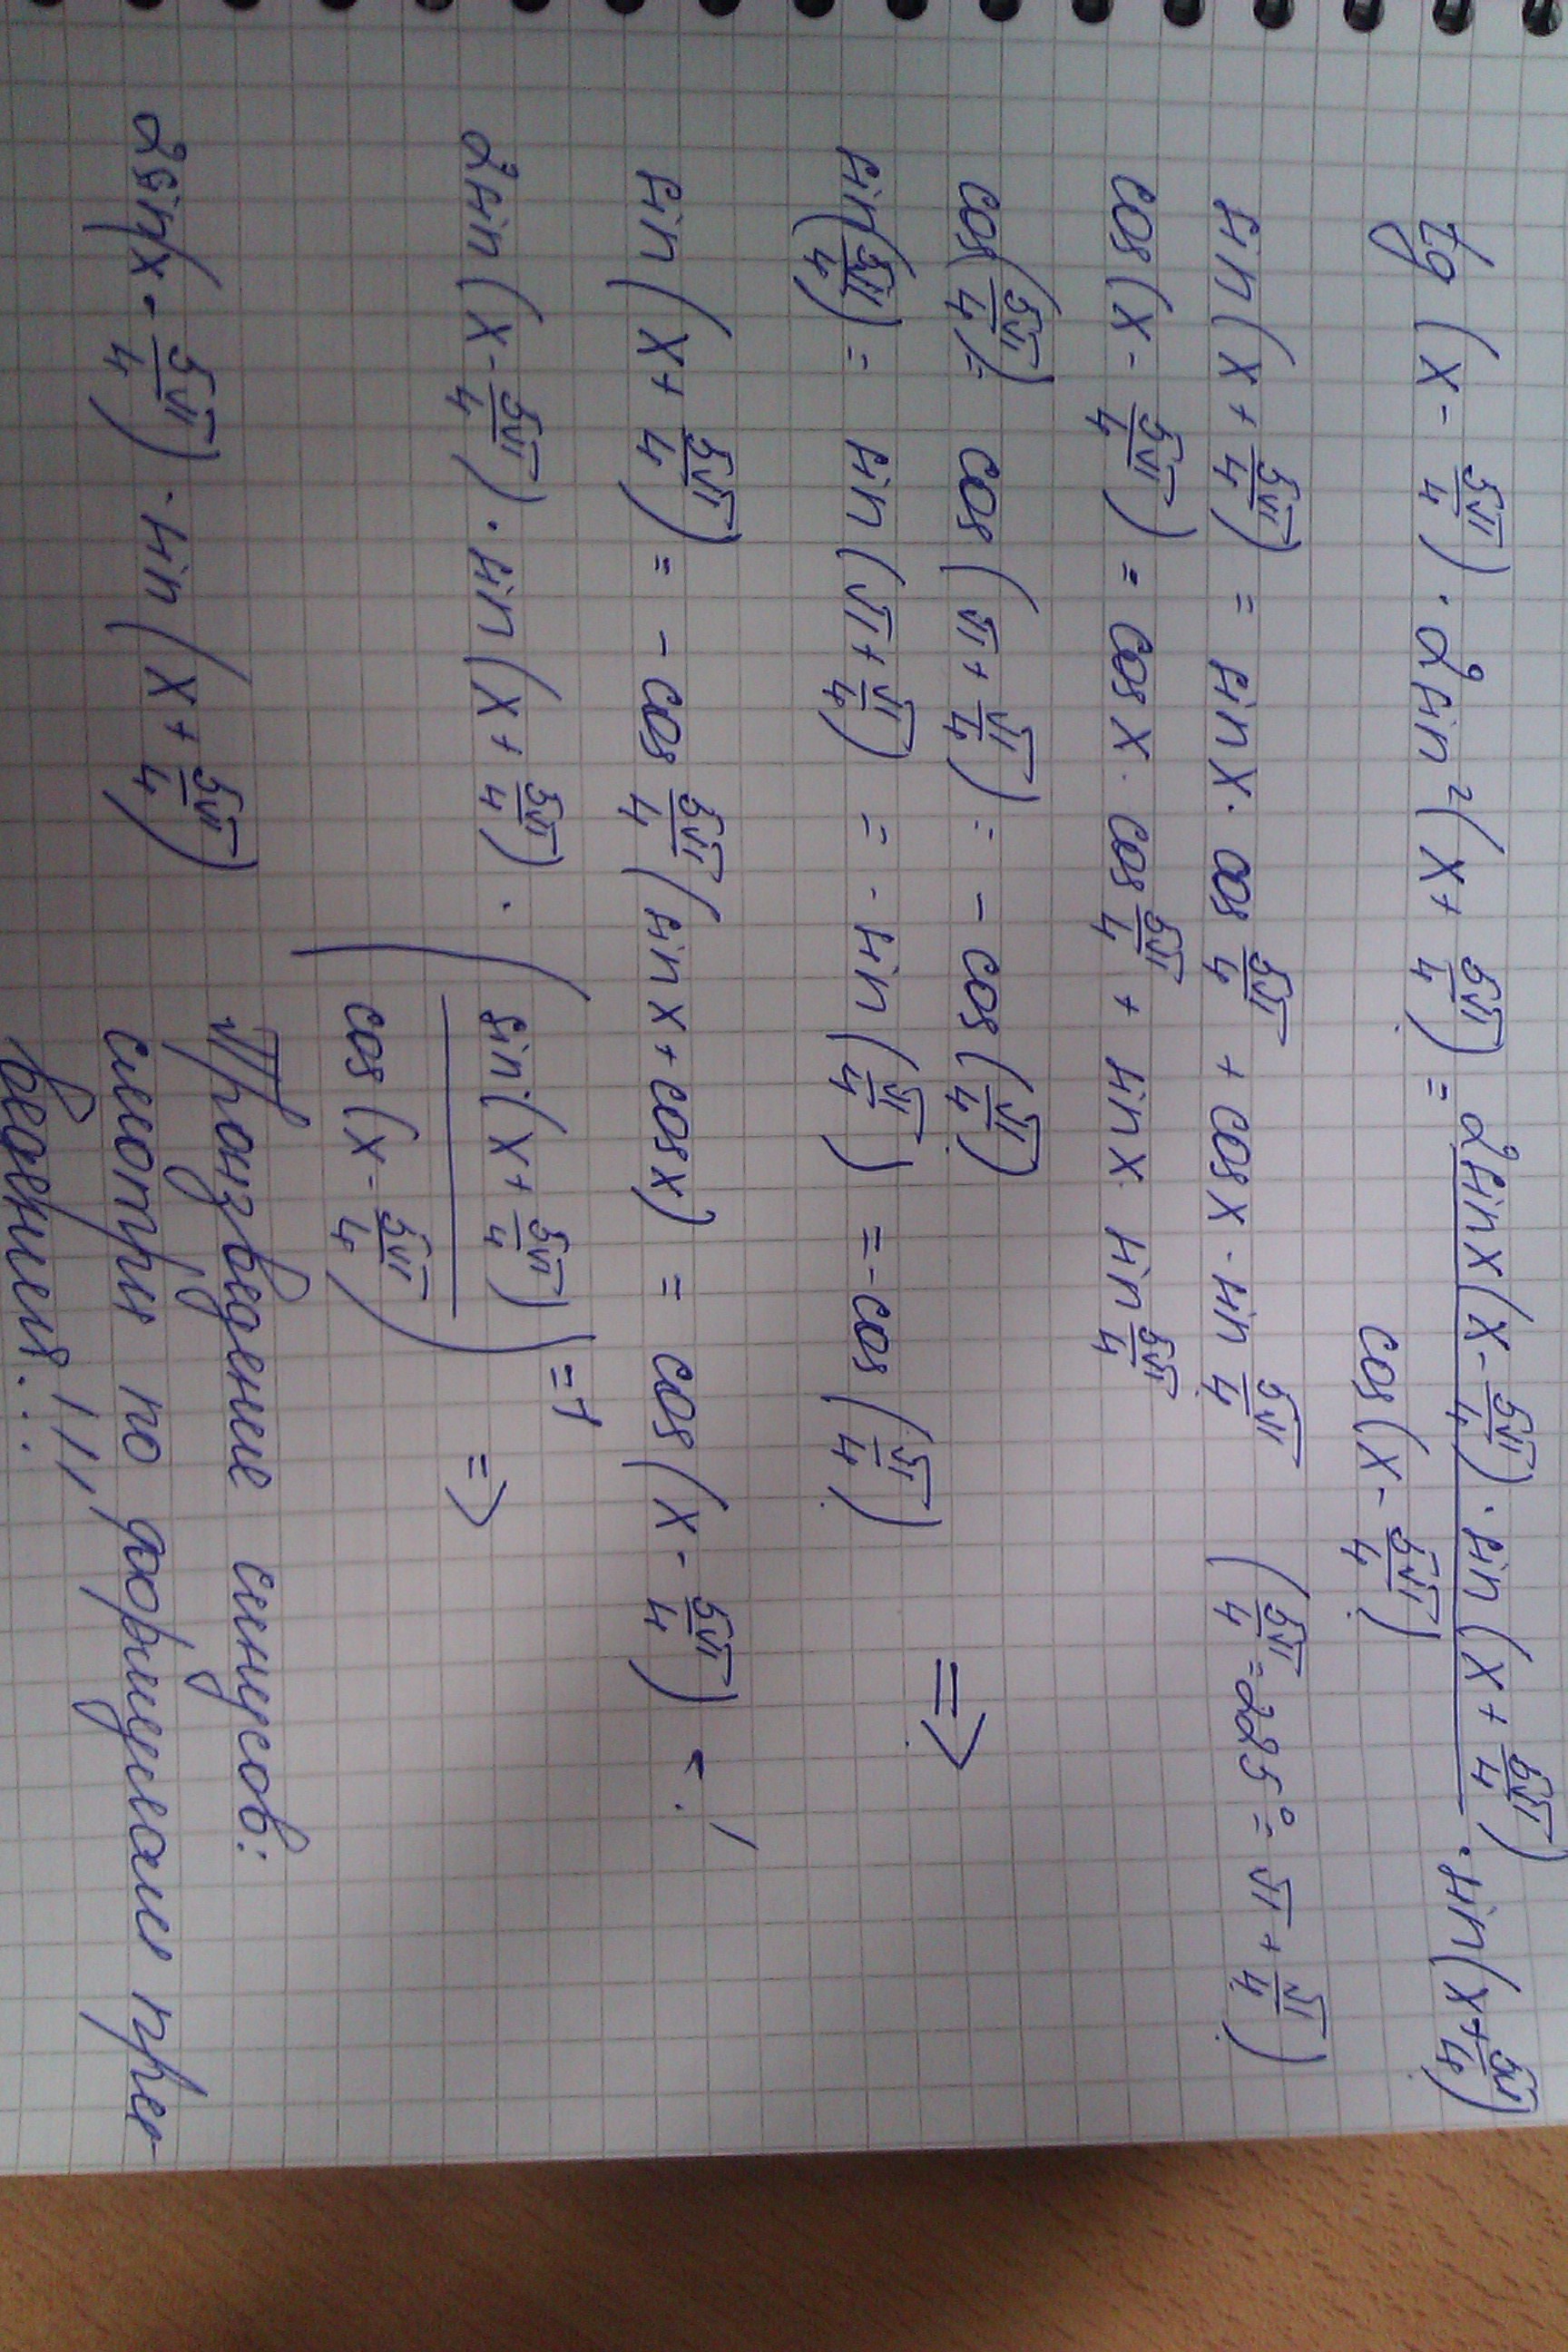 tg (x - 5π/4) · 2sin²(x + 5π/4) = 2sinx(x - 5π/4) · sin(x + 5π/4) / cos(x - 5π/4) · sin(x + 5π/4)
sin(x + 5π/4) = sinx · cos 5π/4 + cosx · sin 5π/4 (5π/4 = 225° = π + π/4)
cos(x - 5π/4) = cosx · cos 5π/4 + sinx · sin 5π/4
cos(5π/4) = cos(π + π/4) = - cos(π/4)
sin(5π/4) = sin(π + π/4) = - sin(π/4) = - cos(π/4) =>
sin(x + 5π/4) = - cos 5π/4 (sinx + cosx) = cos(x - 5π/4)
2sin(x - 5π/4) · sin(x + 5π/4) · (sin(x + 5π/4) / cos(x - 5π/4)) = 1 =>
Произведение синусов:
2sin(x - 5π/4) · sin(x + 5π/4) смотри по формулам прео-
ведения..!!!